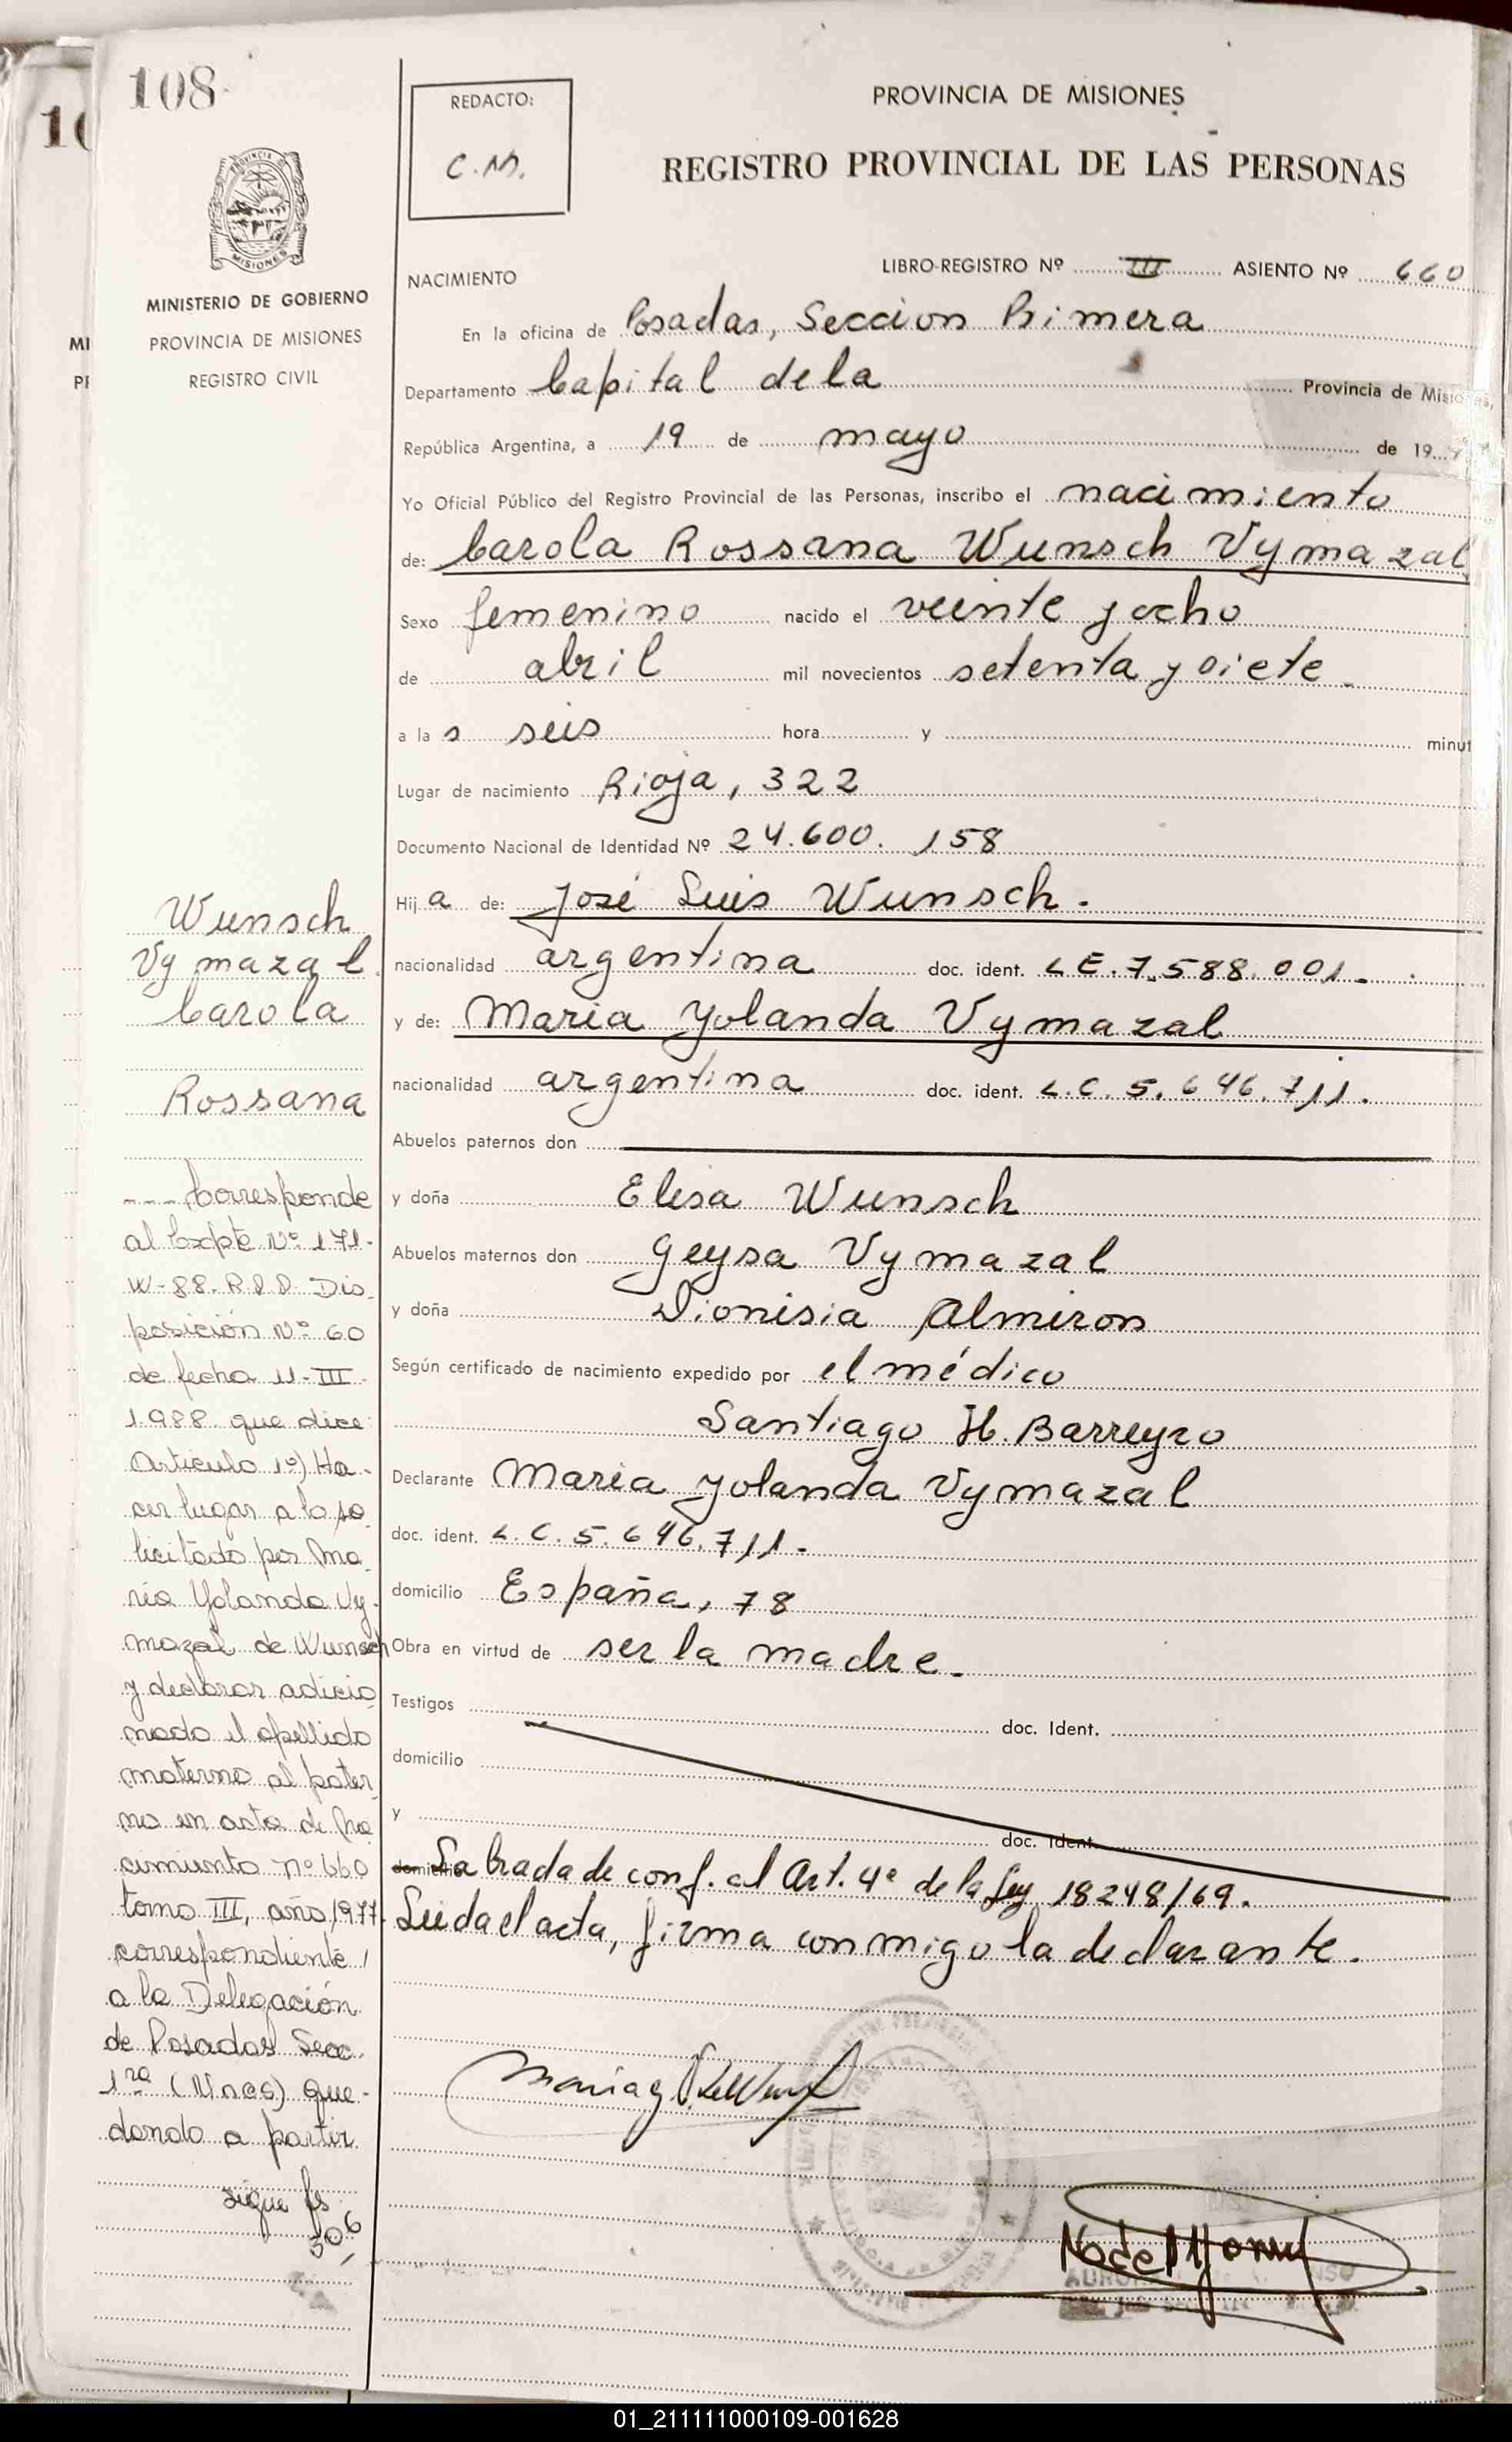 108
REDACTO:
C.M.
PROVINCIA DE MISIONES
REGISTRO PROVINCIAL DE LAS PERSONAS
PROVINCIA DE
MISIONES
MINISTERIO DE GOBIERNO
PROVINCIA DE MISIONES
REGISTRO CIVIL
NACIMIENTO
LIBRO-REGISTRO Nº III ASIENTO Nº 660
En la oficina de Posadas, Seccion Primera
Departamento Capital de la Provincia de Misiones,
República Argentina, a 19 de mayo de 19
Yo Oficial Público del Registro Provincial de las Personas, inscribo el nacimiento
de: Carola Rossana Wunsch Vymazal
Sexo femenino nacido el veinte y ocho
de abril mil novecientos setenta y siete
a la s seis hora y minut
Lugar de nacimiento Rioja, 322
Documento Nacional de Identidad Nº 24.600.158
Hij a de: José Luis Wunsch.
nacionalidad argentina doc. ident. L E. 7.588.001.
y de: Maria Yolanda Vymazal
nacionalidad argentina doc. ident. L.C. 5.646.711.
Abuelos paternos don
y doña Elisa Wunsch
Abuelos maternos don Geysa Vymazal
y doña Dionisia Almiron
Según certificado de nacimiento expedido por el médico
Santiago H. Barreyro
Declarante Maria Yolanda Vymazal
doc. ident. L.C. 5.646.711.
domicilio España, 78
Obra en virtud de ser la madre.
Testigos doc. Ident.
domicilio
y doc. Ident.
domicilio Labrada de conf. al Art. 4º de la Ley 18248/69.
Leida el acta, firma conmigo la declarante.
Wunsch
Vymazal
Carola
Rossana
Corresponde
al Expte Nº 171-
W-88. R.P.P. Dis-
posición Nº 60
de fecha 11-III-
1988 que dice:
Artículo 1º) Ha-
cer lugar a lo so-
licitado por Ma-
ria Yolanda Vy-
mazal de Wunsch
y declarar adicio
nado el apellido
materno al pater
no en acta de Na
cimiento nº 660
tomo III, año 1977.
correspondiente
a la Delegación
de Posadas Secc.
1ra (Nnas) que-
dando a partir
sigue fs
306
01_211111000109-001628